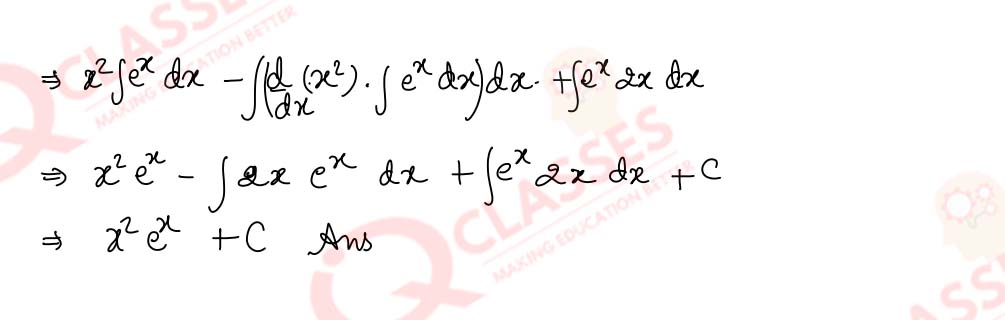 ⇒ x² ∫eˣ dx − ∫(d/dx (x²) · ∫ eˣ dx) dx · + ∫eˣ 2x dx
⇒ x² eˣ − ∫ 2x eˣ dx + ∫eˣ 2x dx + C
⇒ x² eˣ + C Ans
CLASSES
MAKING EDUCATION BETTER
CLASSES
MAKING EDUCATION BETTER